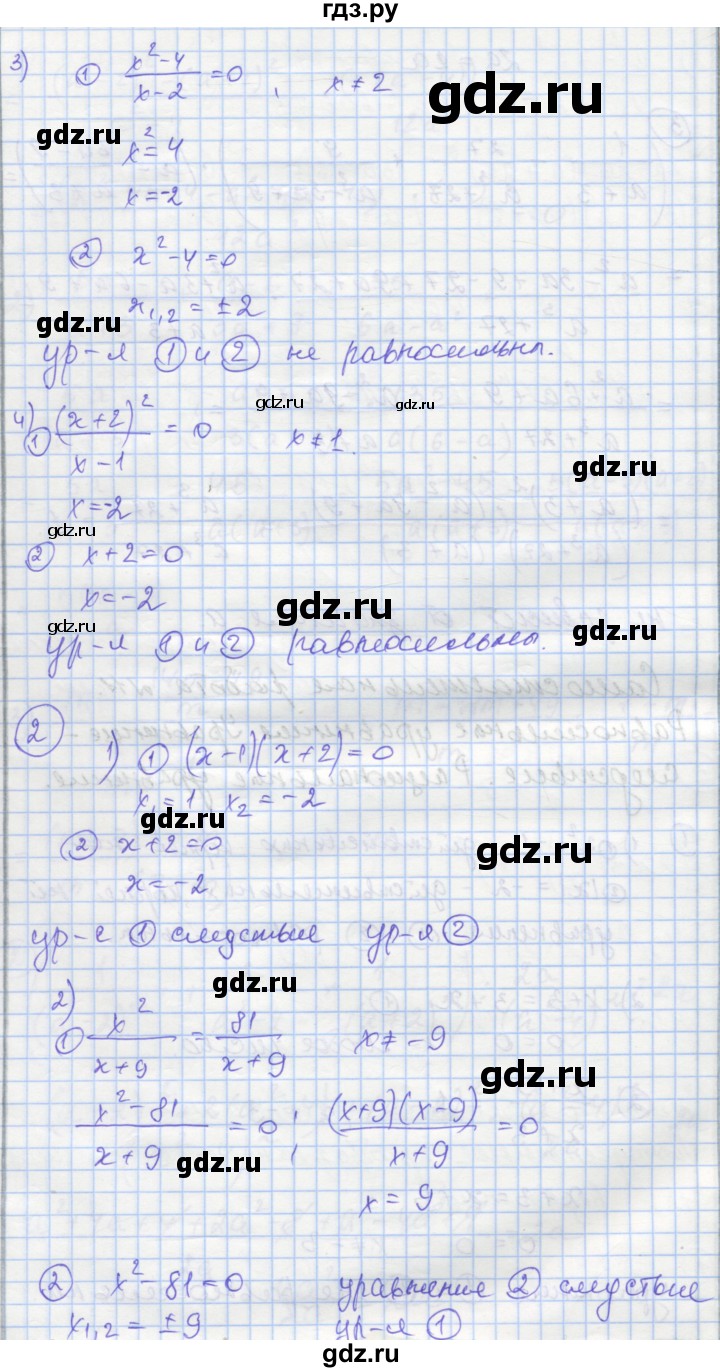 гдз.ру
3) ① (x²-4)/(x-2) = 0, x ≠ 2
gdz.ru
gdz.ru
x² = 4
x = -2
② x²-4=0
x₁,₂ = ±2
gdz.ru
ур-я ① и ② не равносильны.
gdz.ru
gdz.ru
4) ① (x+2)²/(x-1) = 0 x ≠ 1.
gdz.ru
x = -2
gdz.ru
② x+2=0
x = -2
gdz.ru
gdz.ru
gdz.ru
ур-я ① и ② равносильны.
② 1) ① (x-1)(x+2)=0
x₁=1 x₂=-2
gdz.ru
② x+2=0
gdz.ru
x=-2
ур-е ① следствие ур-я ②
gdz.ru
2) ① x²/(x+9) = 81/(x+9) x ≠ -9
gdz.ru
(x²-81)/(x+9) = 0; (x+9)(x-9)/(x+9) = 0
gdz.ru
x = 9
② x²-81=0 уравнение ② следствие
x₁,₂ = ±9 ур-я ①
gdz.ru